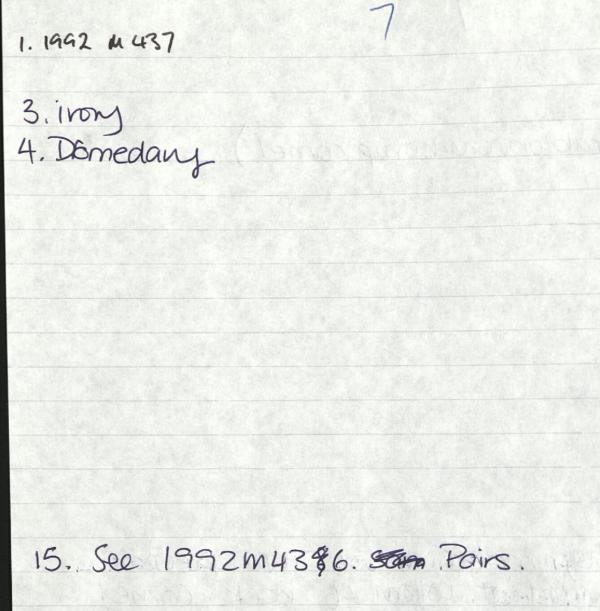 7
1. 1992 M 437
3. irony
4. Domedary
15. See 1992M436. Pairs.